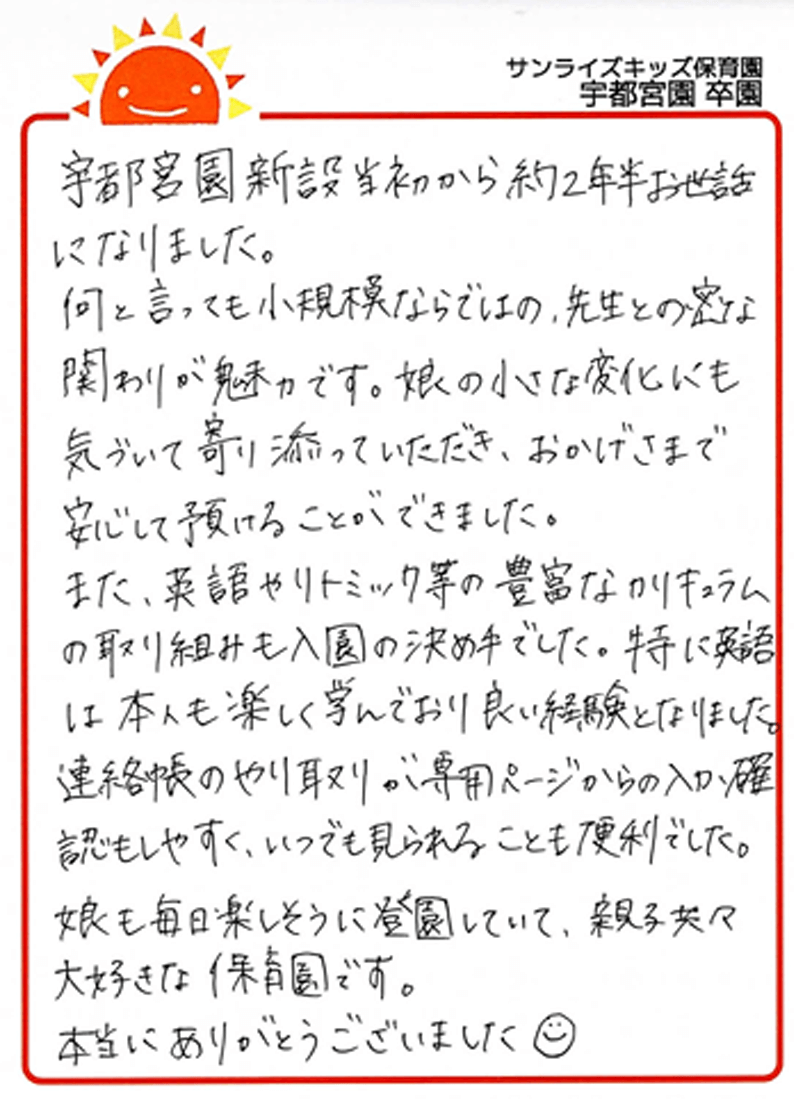 サンライズキッズ保育園
宇都宮園 卒園
宇都宮園新設当初から約2年半お世話
になりました。
何と言っても小規模ならではの、先生との密な
関わりが魅力です。娘の小さな変化にも
気づいて寄り添っていただき、おかげさまで
安心して預けることができました。
また、英語やリトミック等の豊富なカリキュラム
の取り組みも入園の決め手でした。特に英語
は本人も楽しく学んでおり良い経験となりました。
連絡帳のやり取りが専用ページからの入力、確
認もしやすく、いつでも見られることも便利でした。
娘も毎日楽しそうに登園していて、親子共々
大好きな保育園です。
本当にありがとうございました